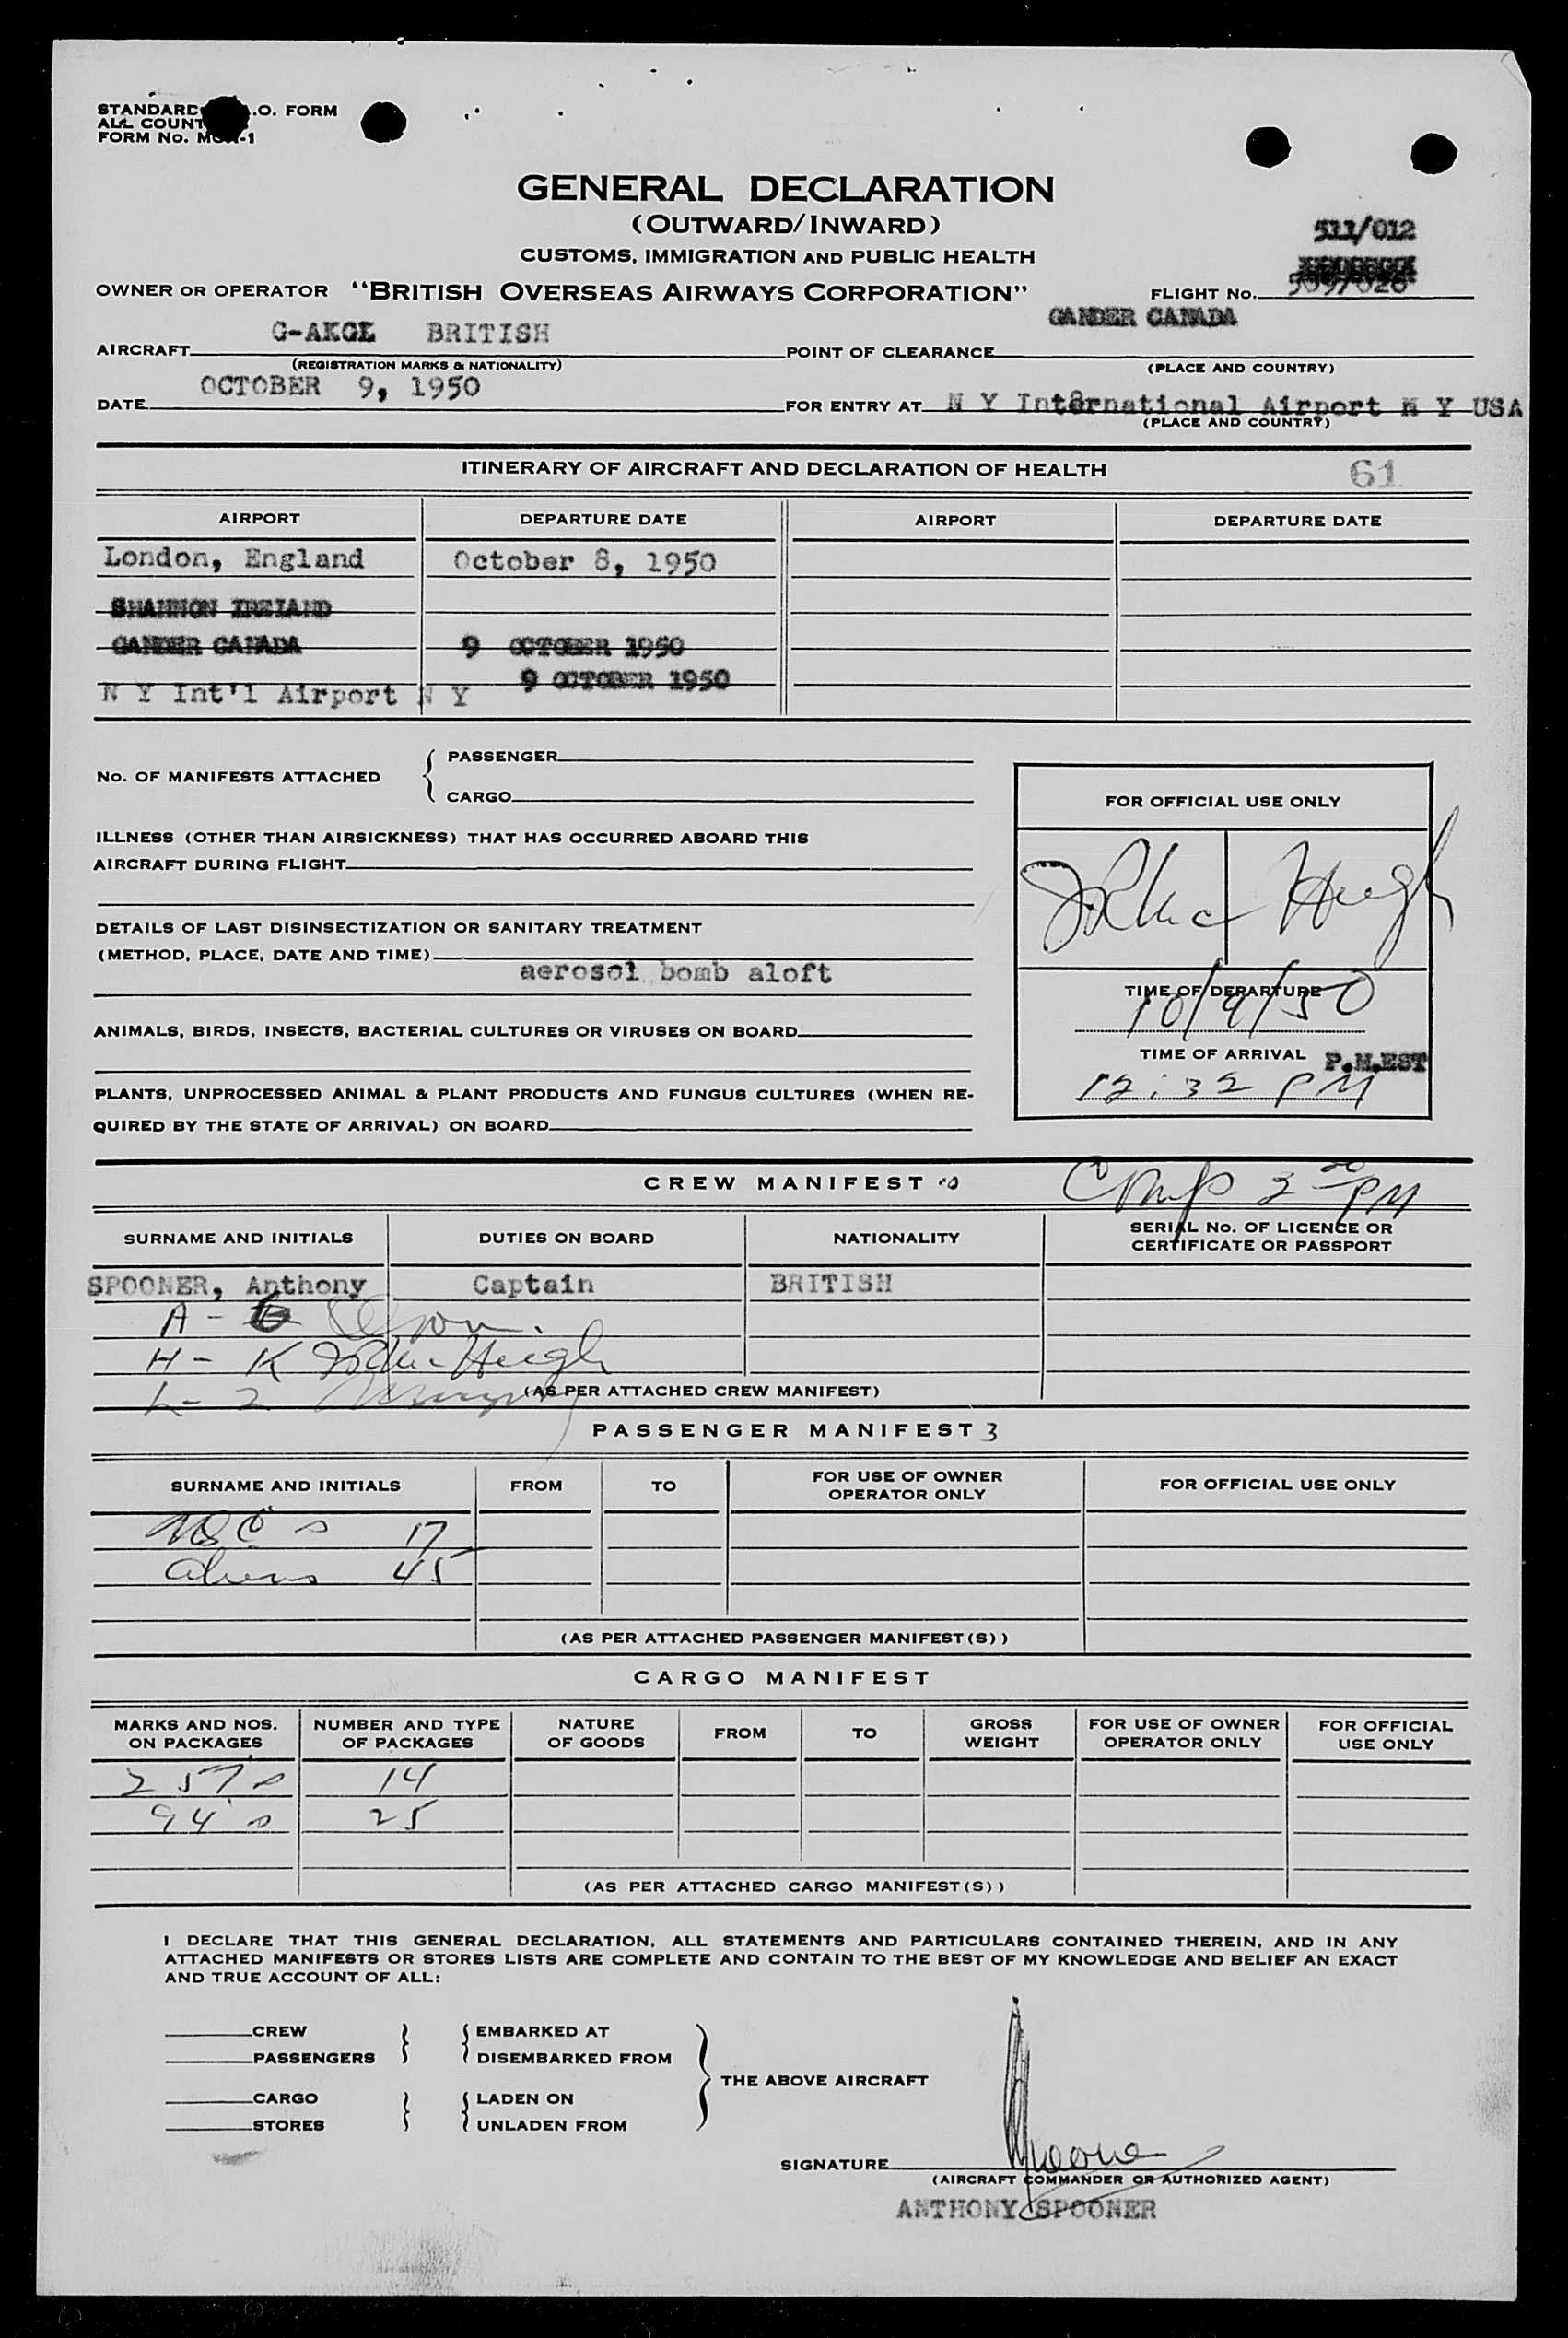 STANDARD .O. FORM
ALL COUNT
FORM No. M -1
GENERAL DECLARATION
(OUTWARD/INWARD)
CUSTOMS, IMMIGRATION AND PUBLIC HEALTH
511/012
OWNER OR OPERATOR "BRITISH OVERSEAS AIRWAYS CORPORATION" FLIGHT No. 509/026
AIRCRAFT G-AKGL BRITISH POINT OF CLEARANCE GANDER CANADA
(REGISTRATION MARKS & NATIONALITY) (PLACE AND COUNTRY)
DATE OCTOBER 9, 1950 FOR ENTRY AT N Y International Airport N Y USA
(PLACE AND COUNTRY)
ITINERARY OF AIRCRAFT AND DECLARATION OF HEALTH 61
AIRPORT DEPARTURE DATE AIRPORT DEPARTURE DATE
London, England October 8, 1950
SHANNON IRELAND
GANDER CANADA 9 OCTOBER 1950
N Y Int'l Airport N Y 9 OCTOBER 1950
No. OF MANIFESTS ATTACHED
PASSENGER
CARGO
ILLNESS (OTHER THAN AIRSICKNESS) THAT HAS OCCURRED ABOARD THIS
AIRCRAFT DURING FLIGHT
DETAILS OF LAST DISINSECTIZATION OR SANITARY TREATMENT
(METHOD, PLACE, DATE AND TIME)
aerosol bomb aloft
ANIMALS, BIRDS, INSECTS, BACTERIAL CULTURES OR VIRUSES ON BOARD
PLANTS, UNPROCESSED ANIMAL & PLANT PRODUCTS AND FUNGUS CULTURES (WHEN RE-
QUIRED BY THE STATE OF ARRIVAL) ON BOARD
FOR OFFICIAL USE ONLY
TIME OF DEPARTURE
10/9/50
TIME OF ARRIVAL P.M.EST
12:32 PM
CREW MANIFEST
3 20 PM
SURNAME AND INITIALS DUTIES ON BOARD NATIONALITY SERIAL No. OF LICENCE OR
CERTIFICATE OR PASSPORT
SPOONER, Anthony Captain BRITISH
A -
H - K
L - 2
(AS PER ATTACHED CREW MANIFEST)
PASSENGER MANIFEST 3
SURNAME AND INITIALS FROM TO FOR USE OF OWNER
OPERATOR ONLY FOR OFFICIAL USE ONLY
USC s 17
aliens 45
(AS PER ATTACHED PASSENGER MANIFEST(S))
CARGO MANIFEST
MARKS AND NOS.
ON PACKAGES NUMBER AND TYPE
OF PACKAGES NATURE
OF GOODS FROM TO GROSS
WEIGHT FOR USE OF OWNER
OPERATOR ONLY FOR OFFICIAL
USE ONLY
257's 14
94's 25
(AS PER ATTACHED CARGO MANIFEST(S))
I DECLARE THAT THIS GENERAL DECLARATION, ALL STATEMENTS AND PARTICULARS CONTAINED THEREIN, AND IN ANY
ATTACHED MANIFESTS OR STORES LISTS ARE COMPLETE AND CONTAIN TO THE BEST OF MY KNOWLEDGE AND BELIEF AN EXACT
AND TRUE ACCOUNT OF ALL:
CREW EMBARKED AT
PASSENGERS DISEMBARKED FROM
THE ABOVE AIRCRAFT
CARGO LADEN ON
STORES UNLADEN FROM
SIGNATURE Spooner
(AIRCRAFT COMMANDER OR AUTHORIZED AGENT)
ANTHONY SPOONER